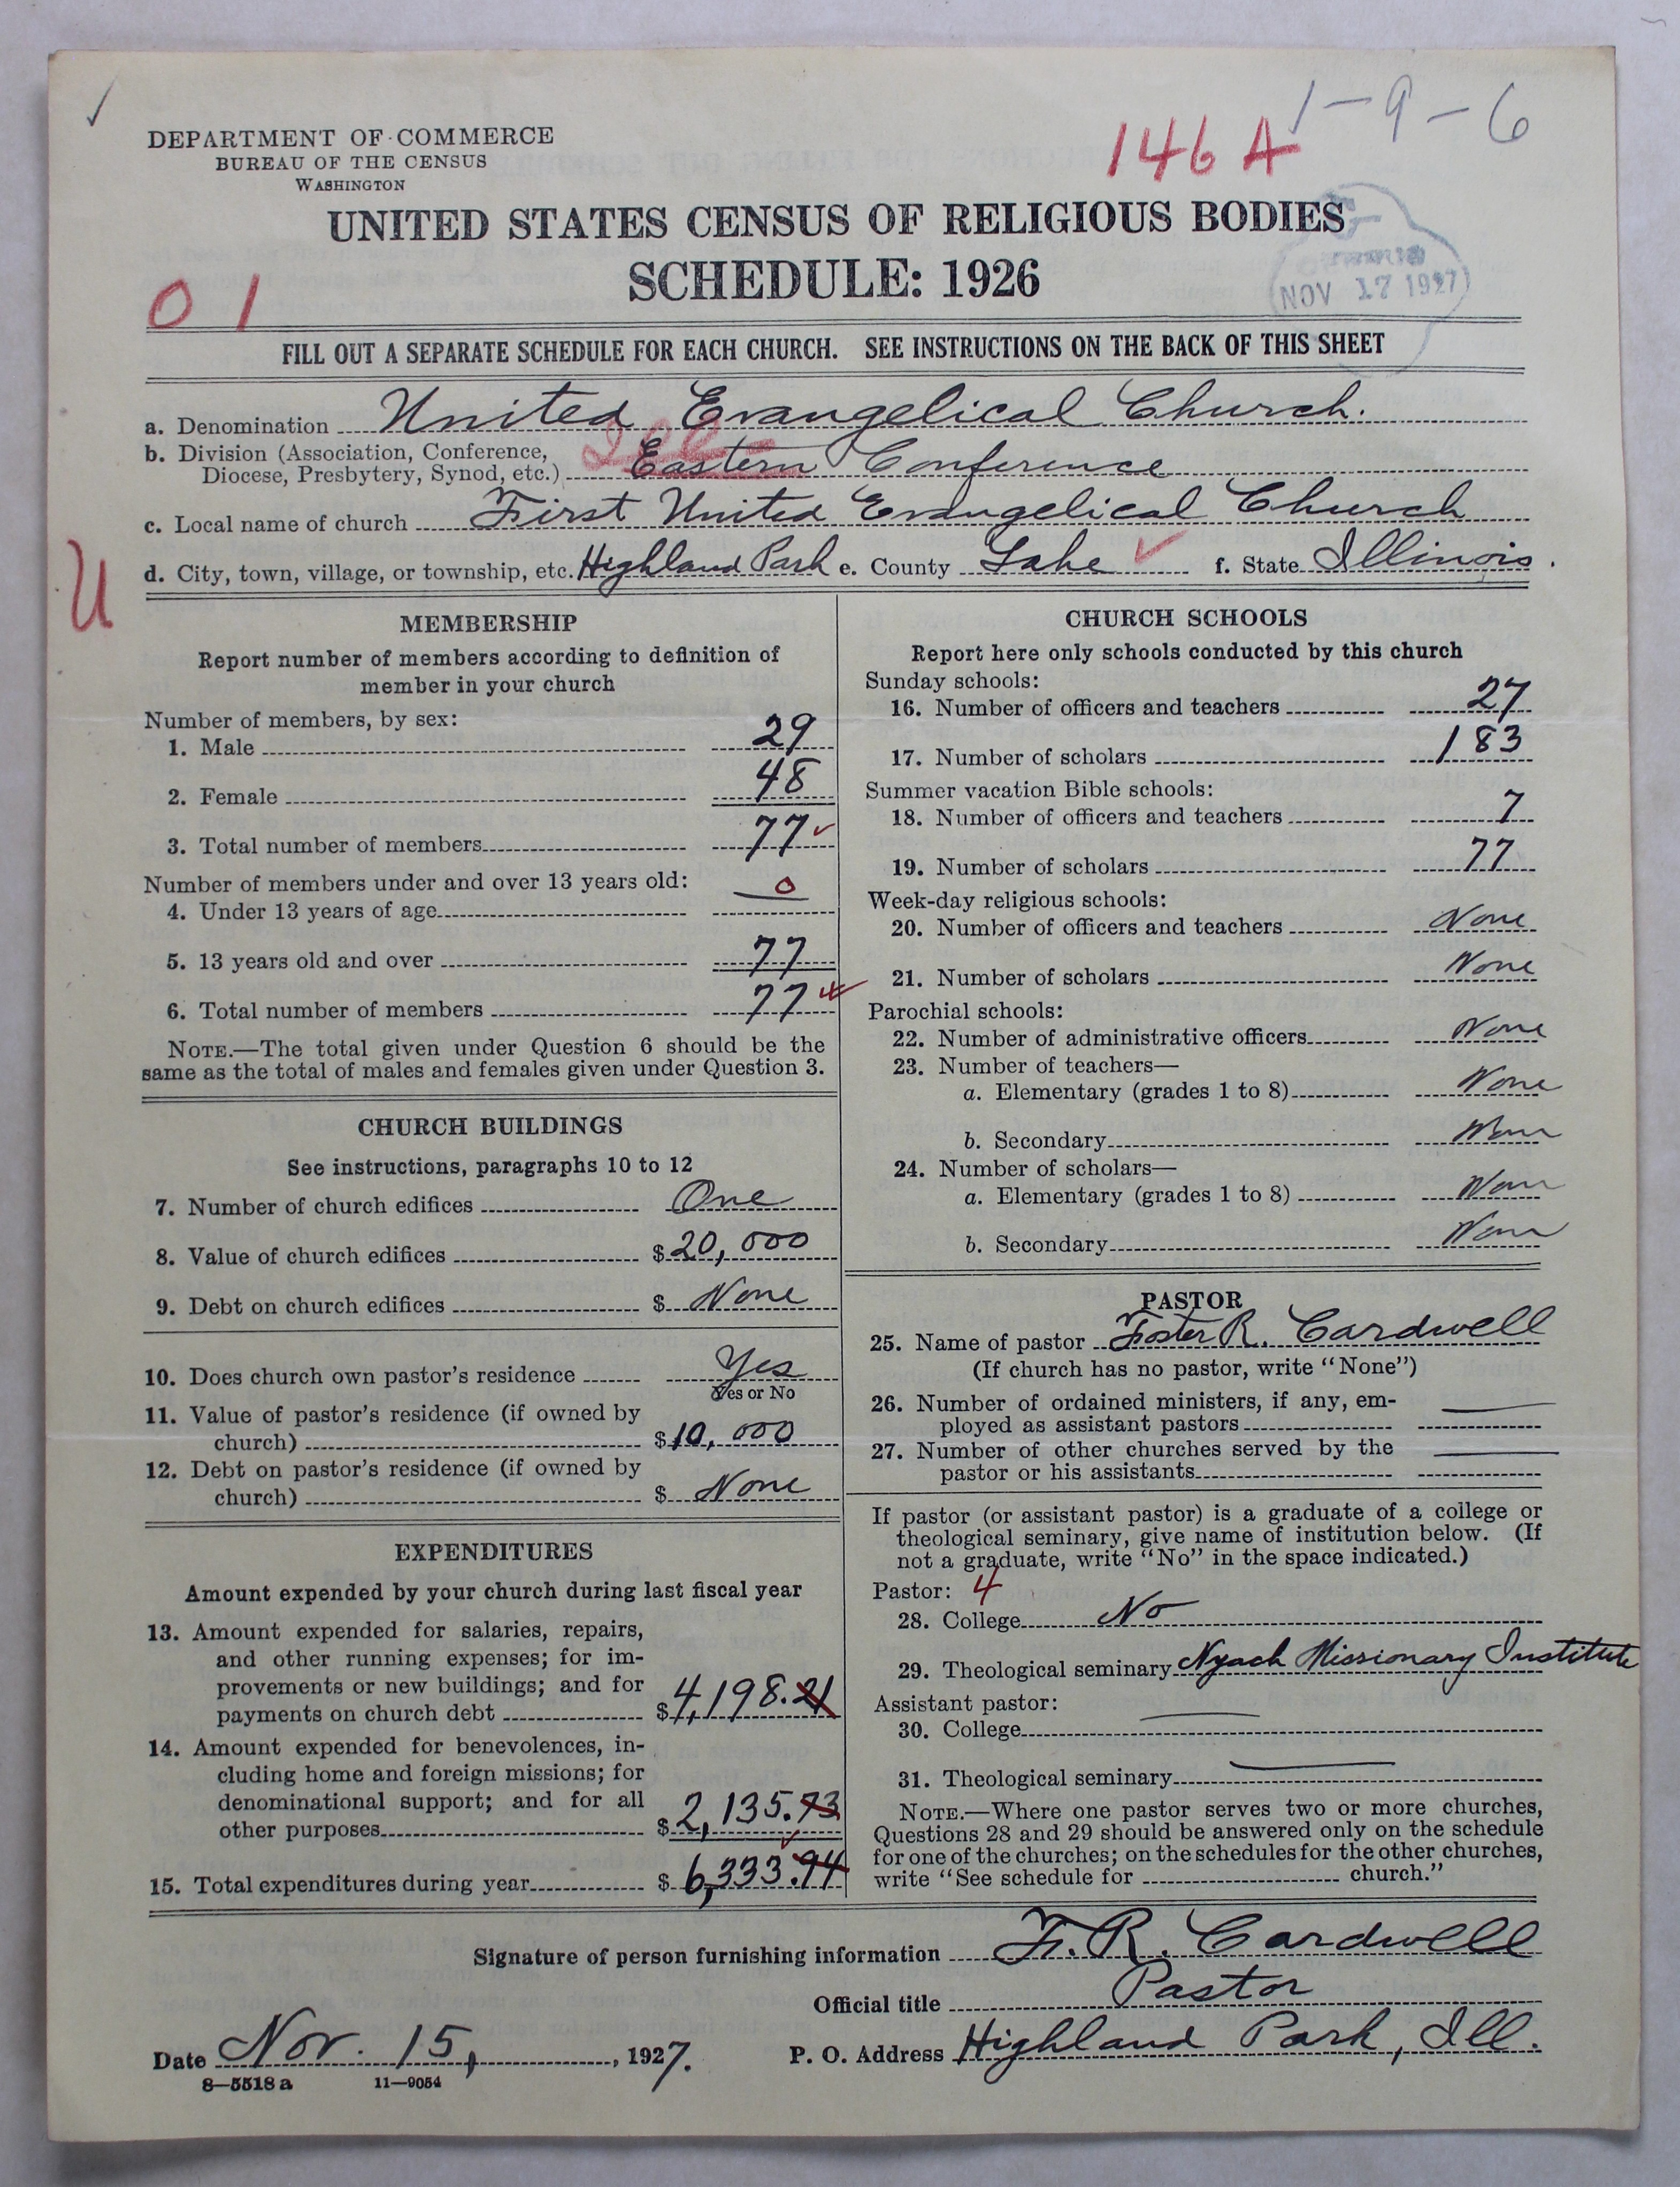 1-9-6
146 A
DEPARTMENT OF COMMERCE
BUREAU OF THE CENSUS
WASHINGTON
UNITED STATES CENSUS OF RELIGIOUS BODIES
SCHEDULE: 1926
NOV 17 1927
01
FILL OUT A SEPARATE SCHEDULE FOR EACH CHURCH. SEE INSTRUCTIONS ON THE BACK OF THIS SHEET
a. Denomination United Evangelical Church.
b. Division (Association, Conference,
Diocese, Presbytery, Synod, etc.) Eastern Conference
c. Local name of church First United Evangelical Church
d. City, town, village, or township, etc. Highland Park e. County Lake f. State Illinois.
U
MEMBERSHIP
Report number of members according to definition of
member in your church
Number of members, by sex:
1. Male 29
2. Female 48
3. Total number of members 77
Number of members under and over 13 years old:
4. Under 13 years of age 0
5. 13 years old and over 77
6. Total number of members 77
NOTE.—The total given under Question 6 should be the
same as the total of males and females given under Question 3.
CHURCH BUILDINGS
See instructions, paragraphs 10 to 12
7. Number of church edifices One
8. Value of church edifices $20,000
9. Debt on church edifices $ None
10. Does church own pastor's residence Yes
Yes or No
11. Value of pastor's residence (if owned by
church) $10,000
12. Debt on pastor's residence (if owned by
church) $ None
EXPENDITURES
Amount expended by your church during last fiscal year
13. Amount expended for salaries, repairs,
and other running expenses; for im-
provements or new buildings; and for
payments on church debt $4,198.21
14. Amount expended for benevolences, in-
cluding home and foreign missions; for
denominational support; and for all
other purposes $2,135.73
15. Total expenditures during year $6,333.94
CHURCH SCHOOLS
Report here only schools conducted by this church
Sunday schools:
16. Number of officers and teachers 27
17. Number of scholars 183
Summer vacation Bible schools:
18. Number of officers and teachers 7
19. Number of scholars 77
Week-day religious schools:
20. Number of officers and teachers None
21. Number of scholars None
Parochial schools:
22. Number of administrative officers None
23. Number of teachers—
a. Elementary (grades 1 to 8) None
b. Secondary None
24. Number of scholars—
a. Elementary (grades 1 to 8) None
b. Secondary None
PASTOR
25. Name of pastor Foster R. Cardwell
(If church has no pastor, write "None")
26. Number of ordained ministers, if any, em-
ployed as assistant pastors —
27. Number of other churches served by the
pastor or his assistants —
If pastor (or assistant pastor) is a graduate of a college or
theological seminary, give name of institution below. (If
not a graduate, write "No" in the space indicated.)
Pastor: 4
28. College No
29. Theological seminary Nyack Missionary Institute
Assistant pastor:
30. College —
31. Theological seminary —
NOTE.—Where one pastor serves two or more churches,
Questions 28 and 29 should be answered only on the schedule
for one of the churches; on the schedules for the other churches,
write "See schedule for church."
Signature of person furnishing information F. R. Cardwell
Official title Pastor
Date Nov. 15, , 1927. P. O. Address Highland Park, Ill.
8—5518 a 11—9054